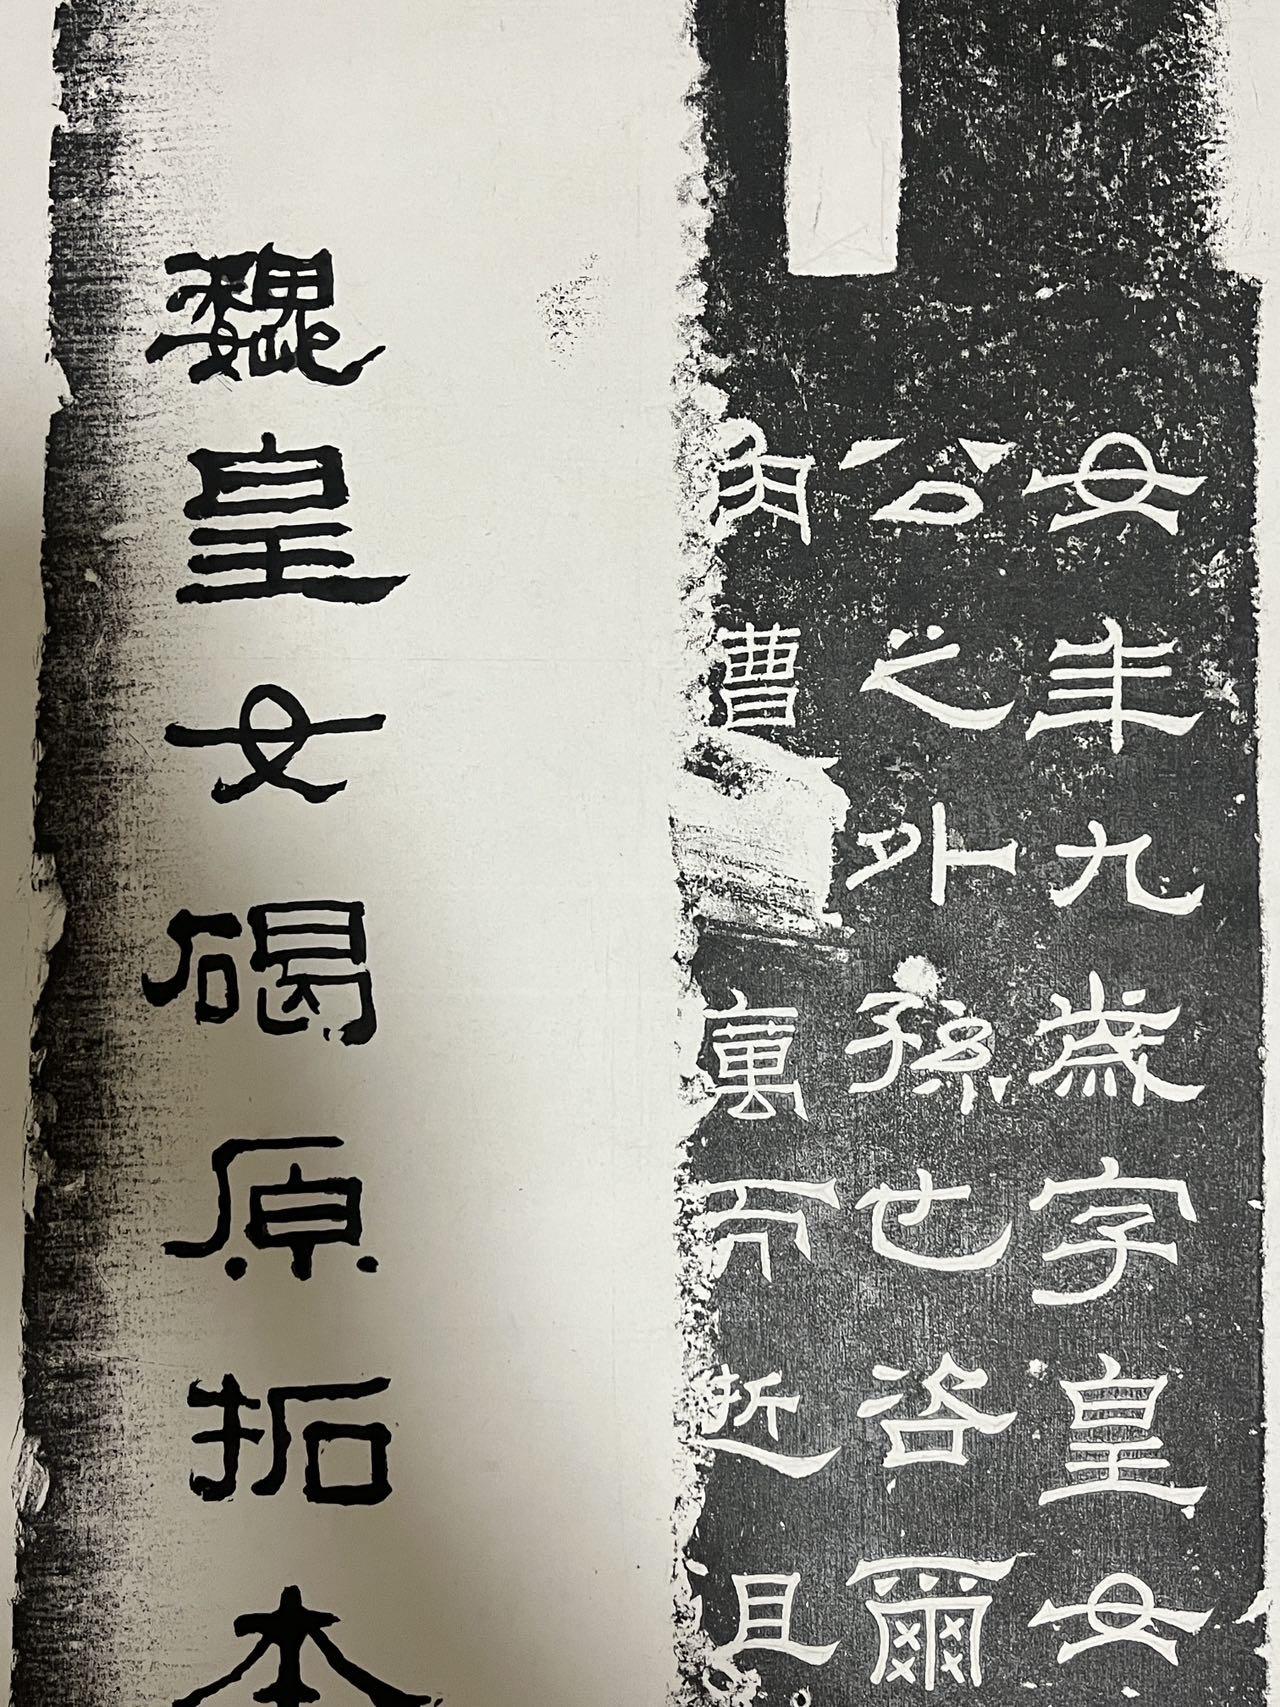 女年九歲字皇女
公之外孫也咨爾
曹
萬不逝
魏皇女碣原拓本